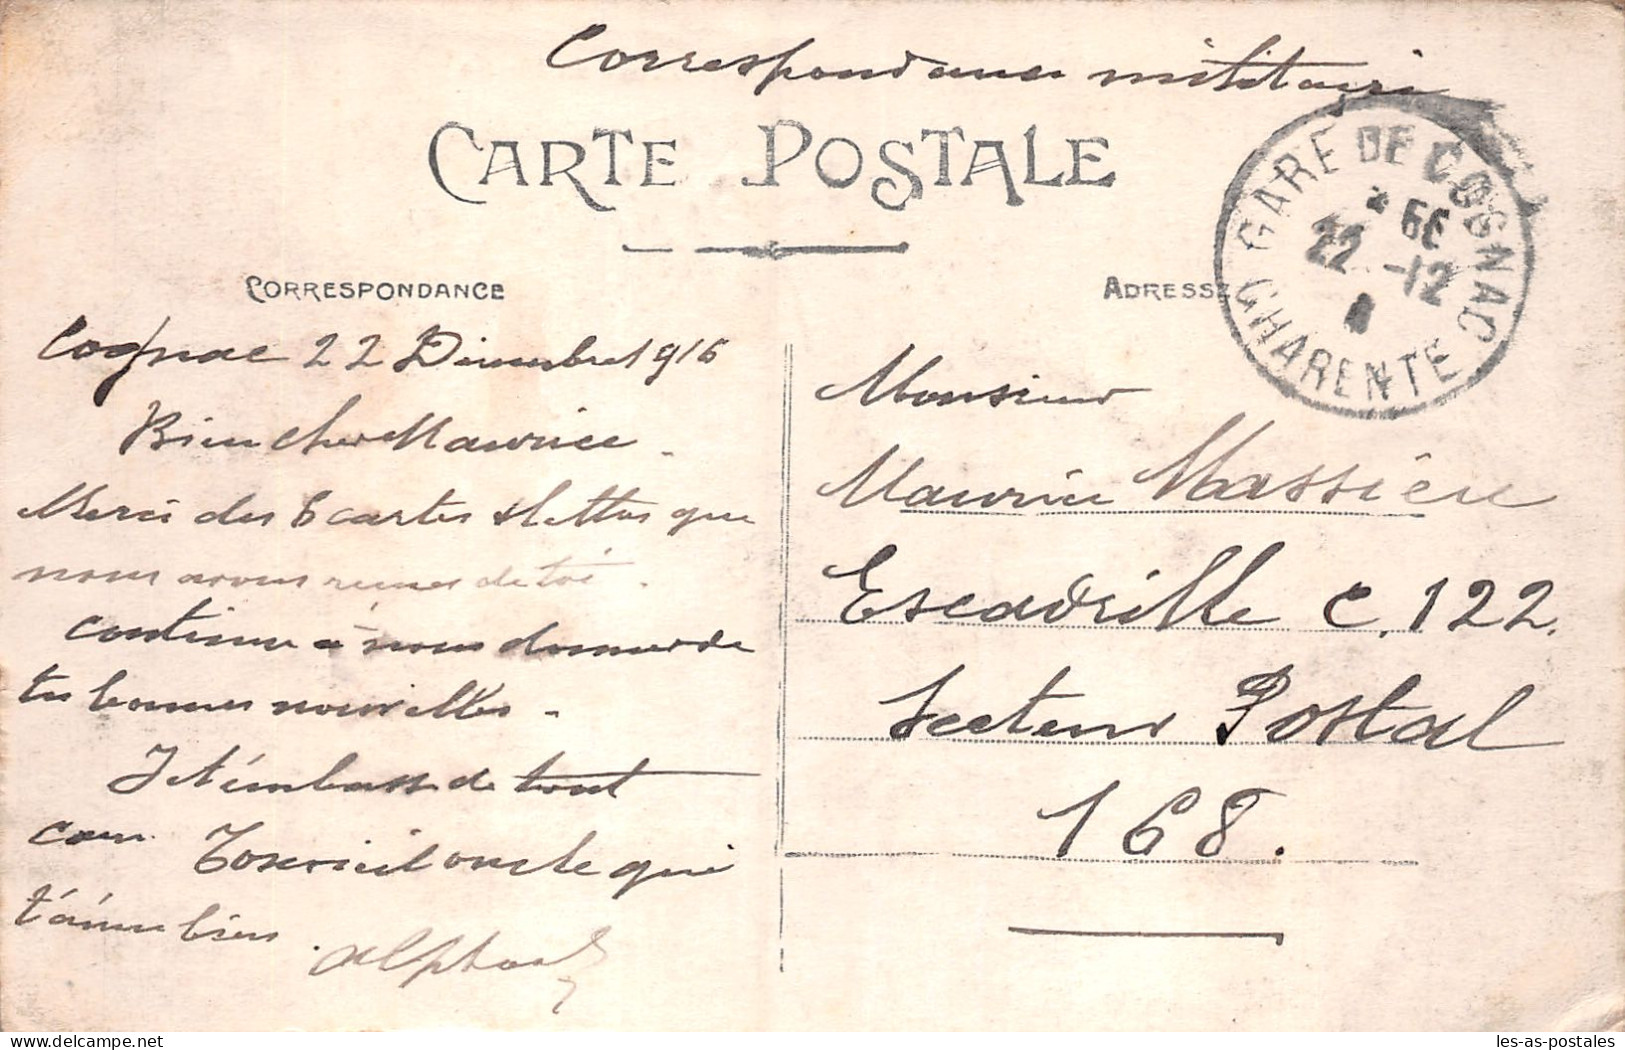 Correspondance militaire
CARTE POSTALE
GARE DE COGNAC
22 -12
CHARENTE
CORRESPONDANCE
Cognac 22 Décembre 1916
Bien cher Maurice
Merci des 6 cartes & lettres que
nous avons reçues de toi.
continue à nous donner de
tes bonnes nouvelles.
Je t'embrasse de tout
cœur Ton vieil oncle qui
t'aime bien. Alphonse
ADRESSE
Monsieur
Maurice Massiere
Escadrille C. 122.
Secteur Postal
168.
les-as-postales